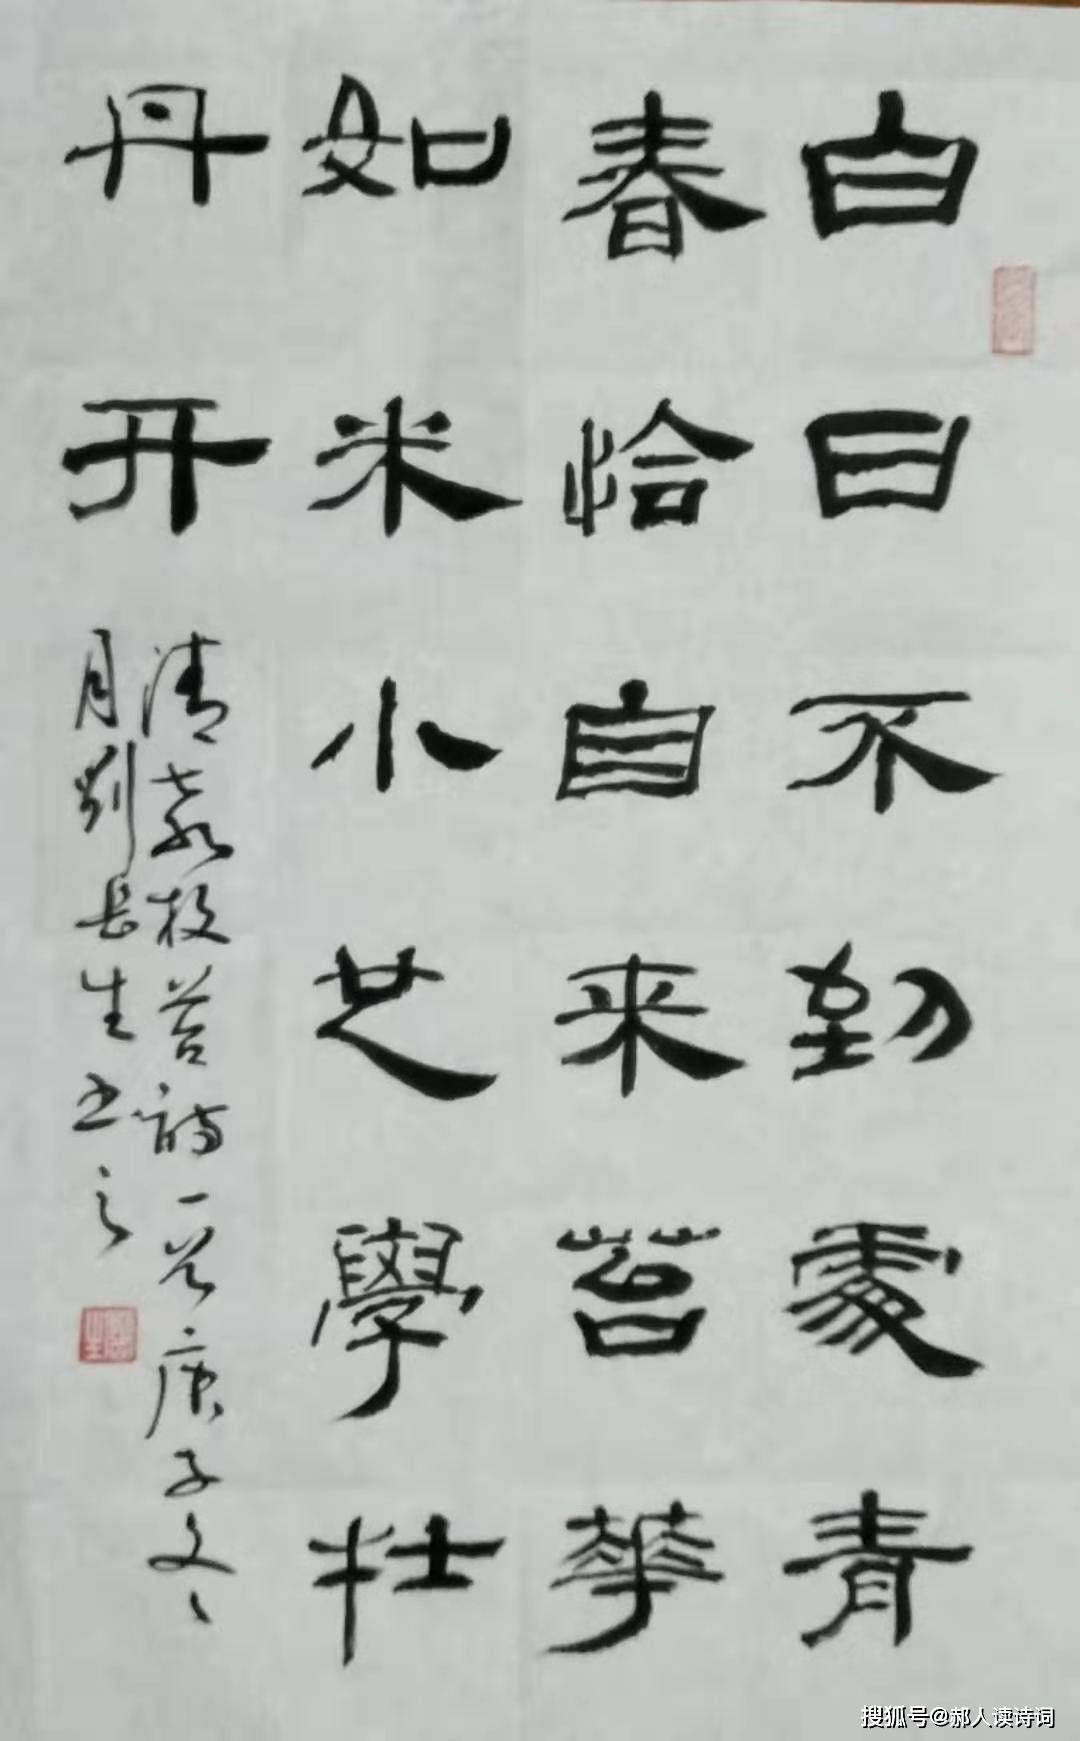 白日不到處青
春恰自来苔華
如米小也學牡
丹开
清袁枚苔詩一首庚子冬
月劉長生书之
搜狐号@郝人读诗词